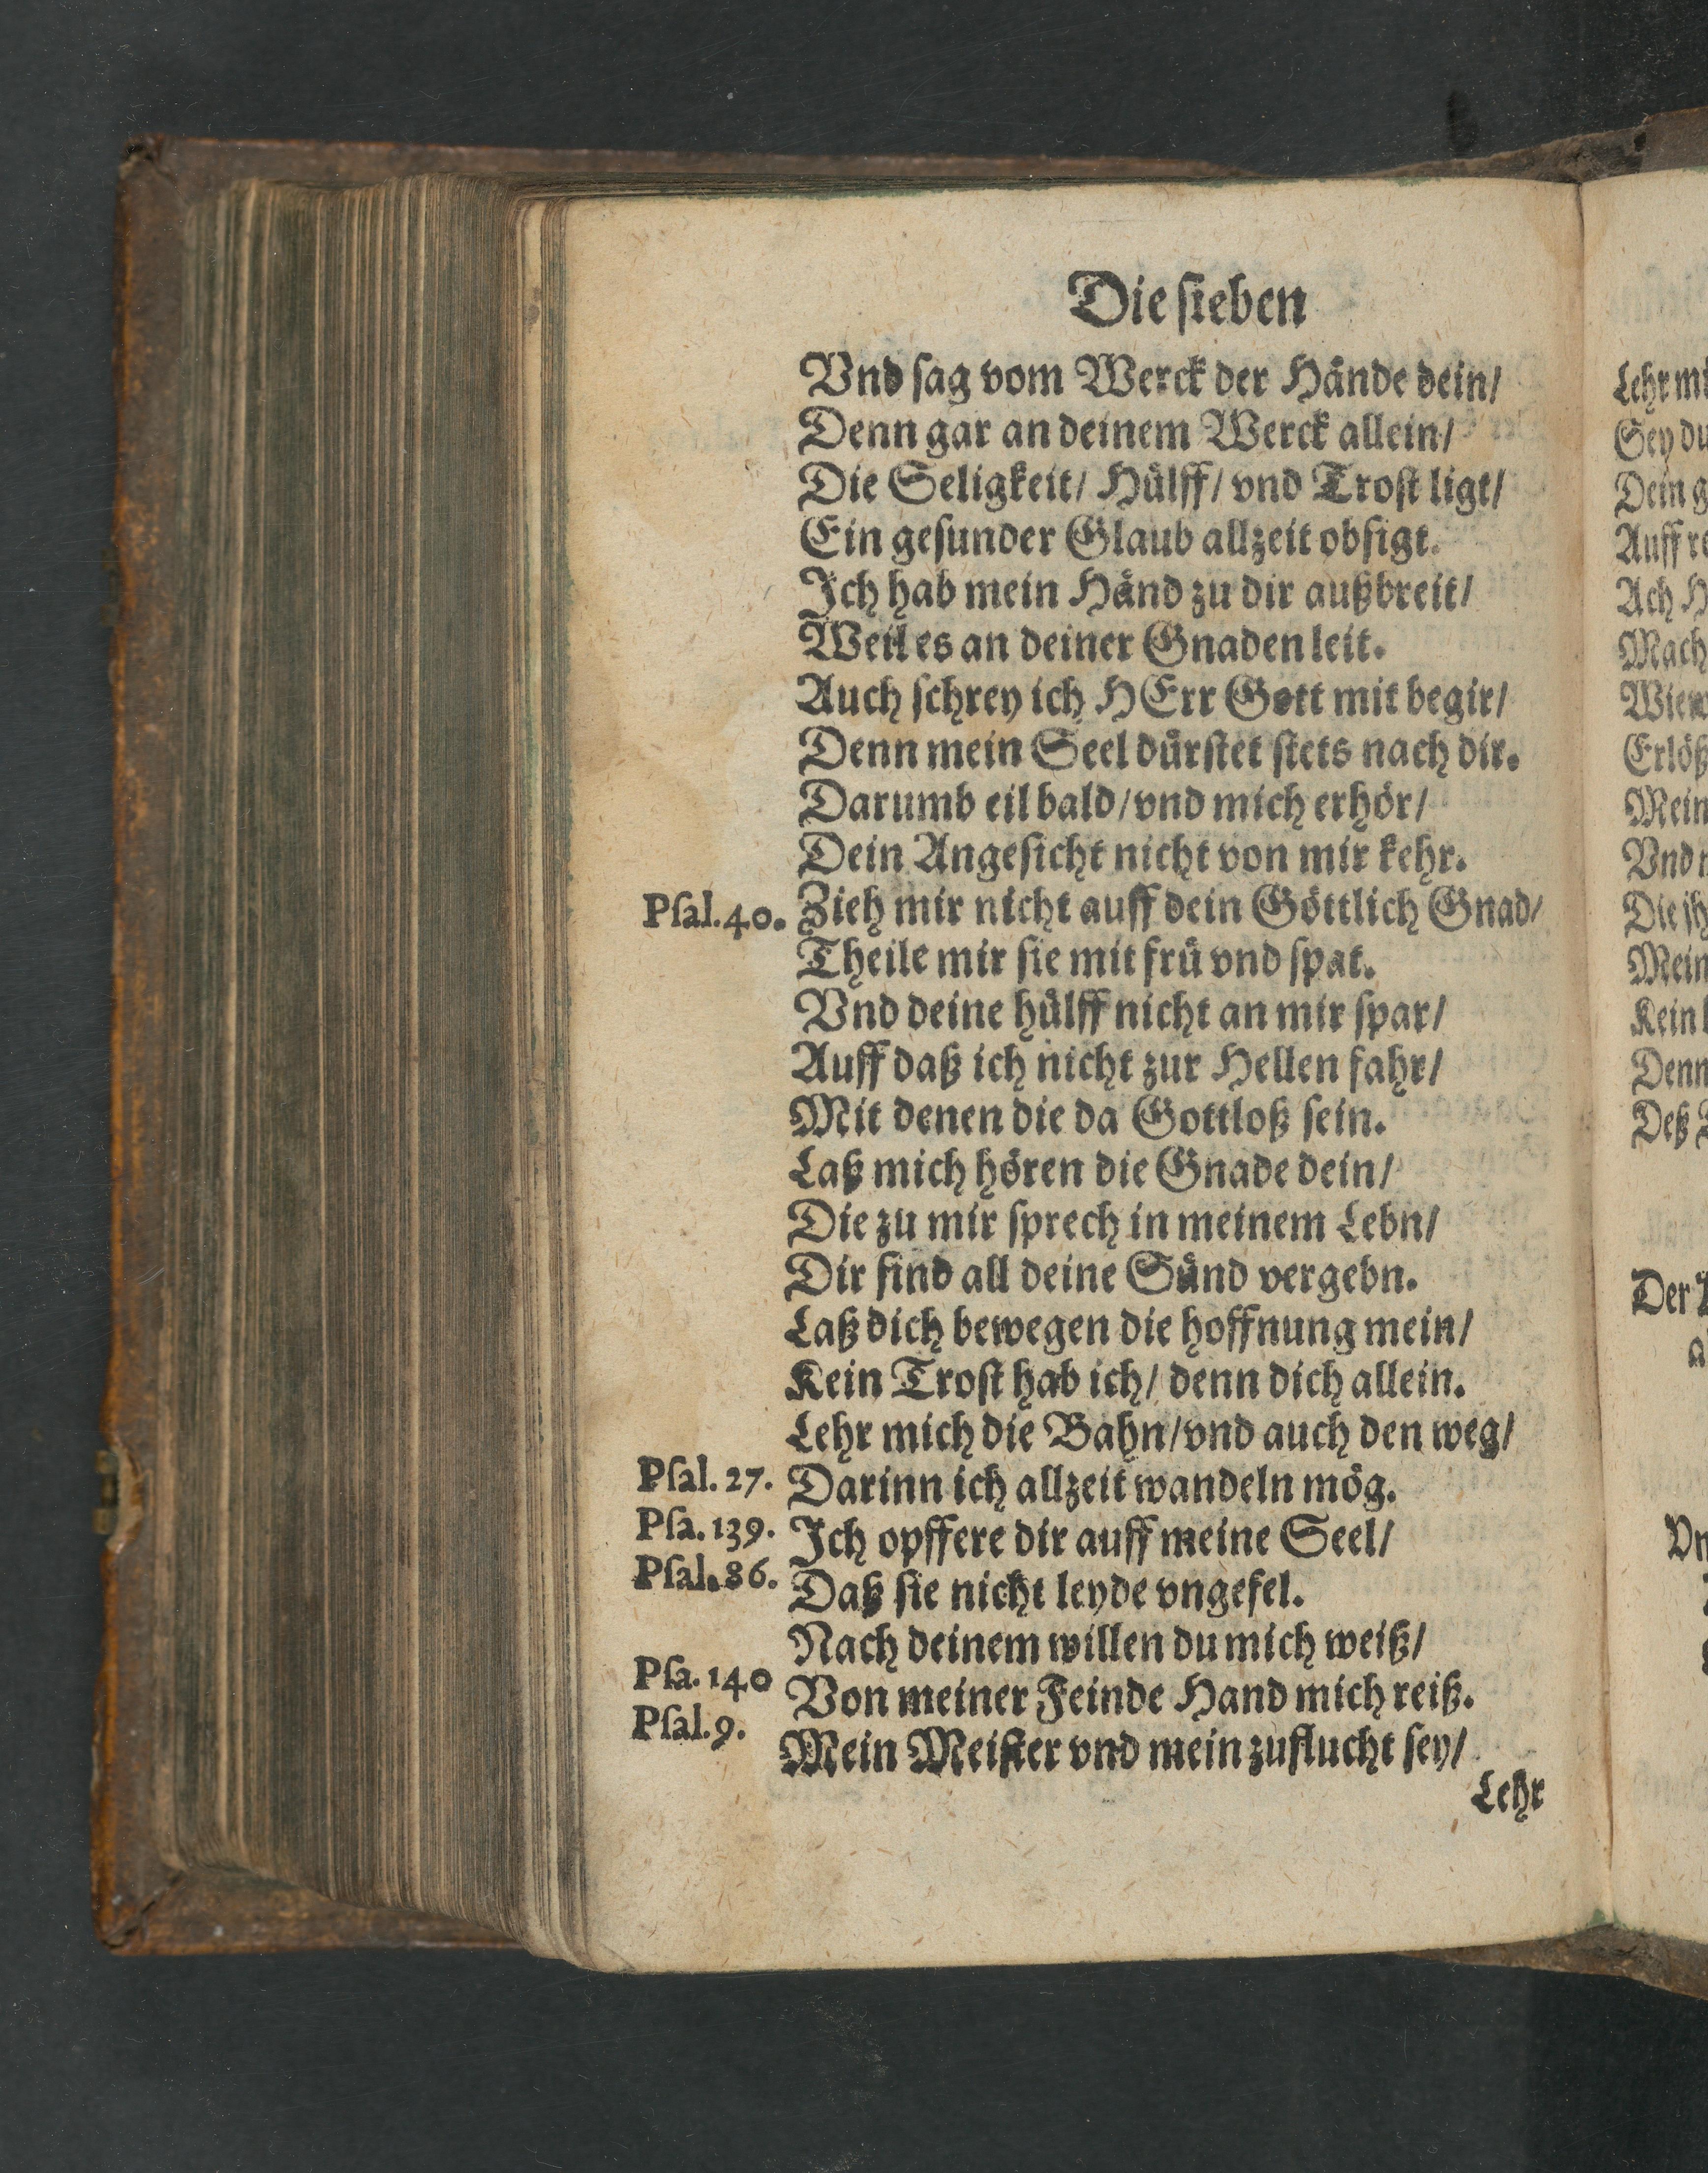 Die ſieben
Vnd ſag vom Werck der Hände dein/
Denn gar an deinem Werck allein/
Die Seligkeit/ Hülff/ vnd Troſt ligt/
Ein geſunder Glaub allzeit obſigt.
Ich hab mein Händ zu dir außbreit/
Weil es an deiner Gnaden leit.
Auch ſchrey ich HErr Gott mit begir/
Denn mein Seel dürſtet ſtets nach dir.
Darumb eil bald/ vnd mich erhör/
Dein Angeſicht nicht von mir kehr.
Pſal. 40. Zieh mir nicht auff dein Göttlich Gnad/
Theile mir ſie mit frü vnd ſpat.
Vnd deine hülff nicht an mir ſpar/
Auff daß ich nicht zur Hellen fahr/
Mit denen die da Gottloß ſein.
Laß mich hören die Gnade dein/
Die zu mir ſprech in meinem Lebn/
Dir ſind all deine Sünd vergebn.
Laß dich bewegen die hoffnung mein/
Kein Troſt hab ich/ denn dich allein.
Lehr mich die Bahn/ vnd auch den weg/
Pſal. 27. Darinn ich allzeit wandeln mög.
Pſa. 139. Ich opffere dir auff meine Seel/
Pſal. 86. Daß ſie nicht leyde vngefel.
Nach deinem willen du mich weiß/
Pſa. 140 Von meiner Feinde Hand mich reiß.
Pſal. 9. Mein Meiſter vnd mein zuflucht ſey/
Lehr
Lehr
Sey du
Dein
Auff
Ach
Mach
Erlöß
Mein
Vnd
Mein
Kein
Denn
Deß
Der